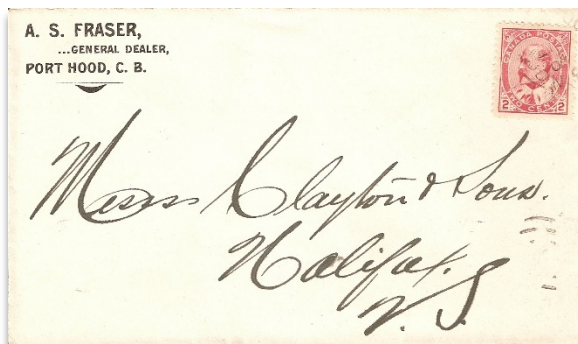 A. S. FRASER,
...GENERAL DEALER,
PORT HOOD, C. B.
CANADA POSTAGE
2 TWO CENTS 2
Messrs Clayton & Sons.
Halifax.
N. S.